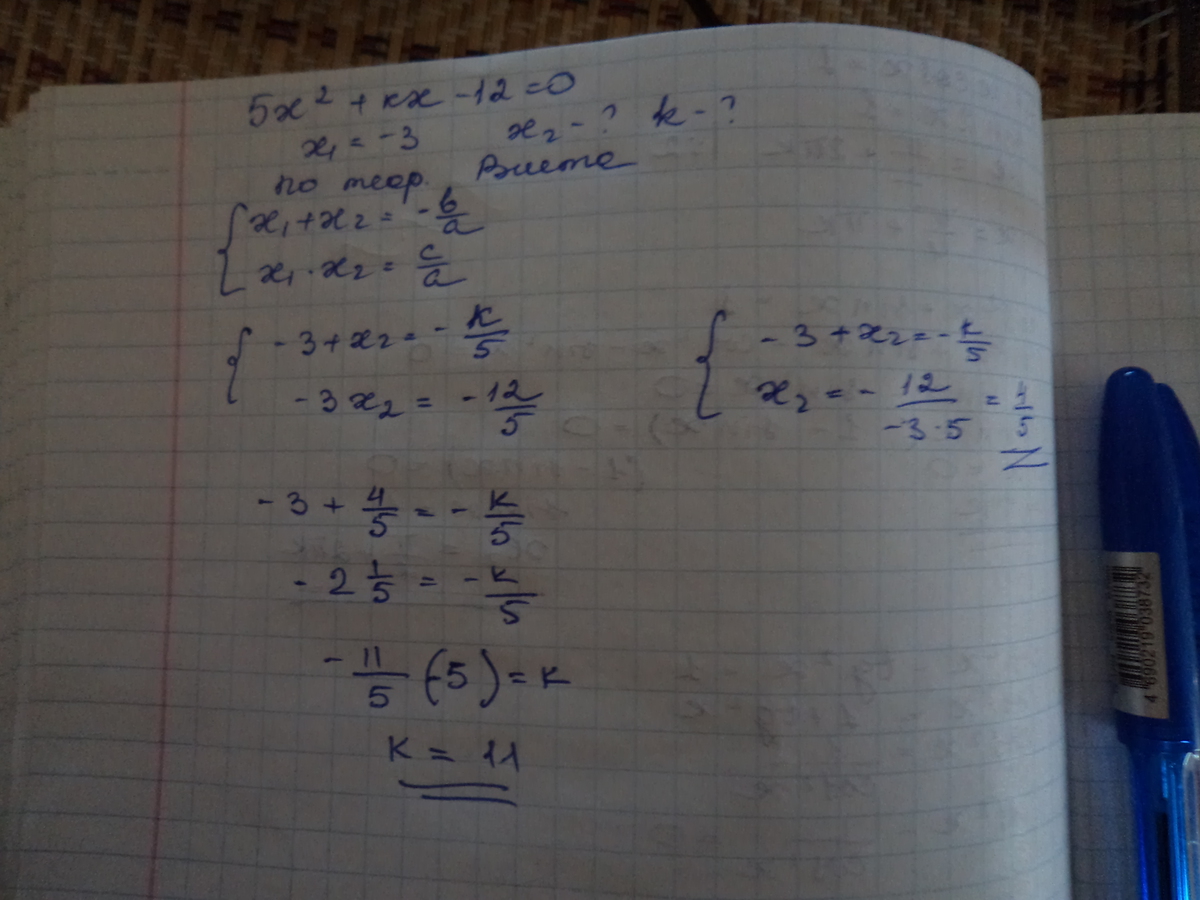 5x² + kx - 12 = 0
x₁ = -3 x₂ - ? k - ?
по теор. Виета
{ x₁ + x₂ = - b/a
x₁ · x₂ = c/a
{ -3 + x₂ = - k/5
-3x₂ = - 12/5
{ -3 + x₂ = - k/5
x₂ = - 12/(-3·5) = 4/5
-3 + 4/5 = - k/5
-2 1/5 = - k/5
- 11/5 (-5) = k
k = 11
4 690219 038732